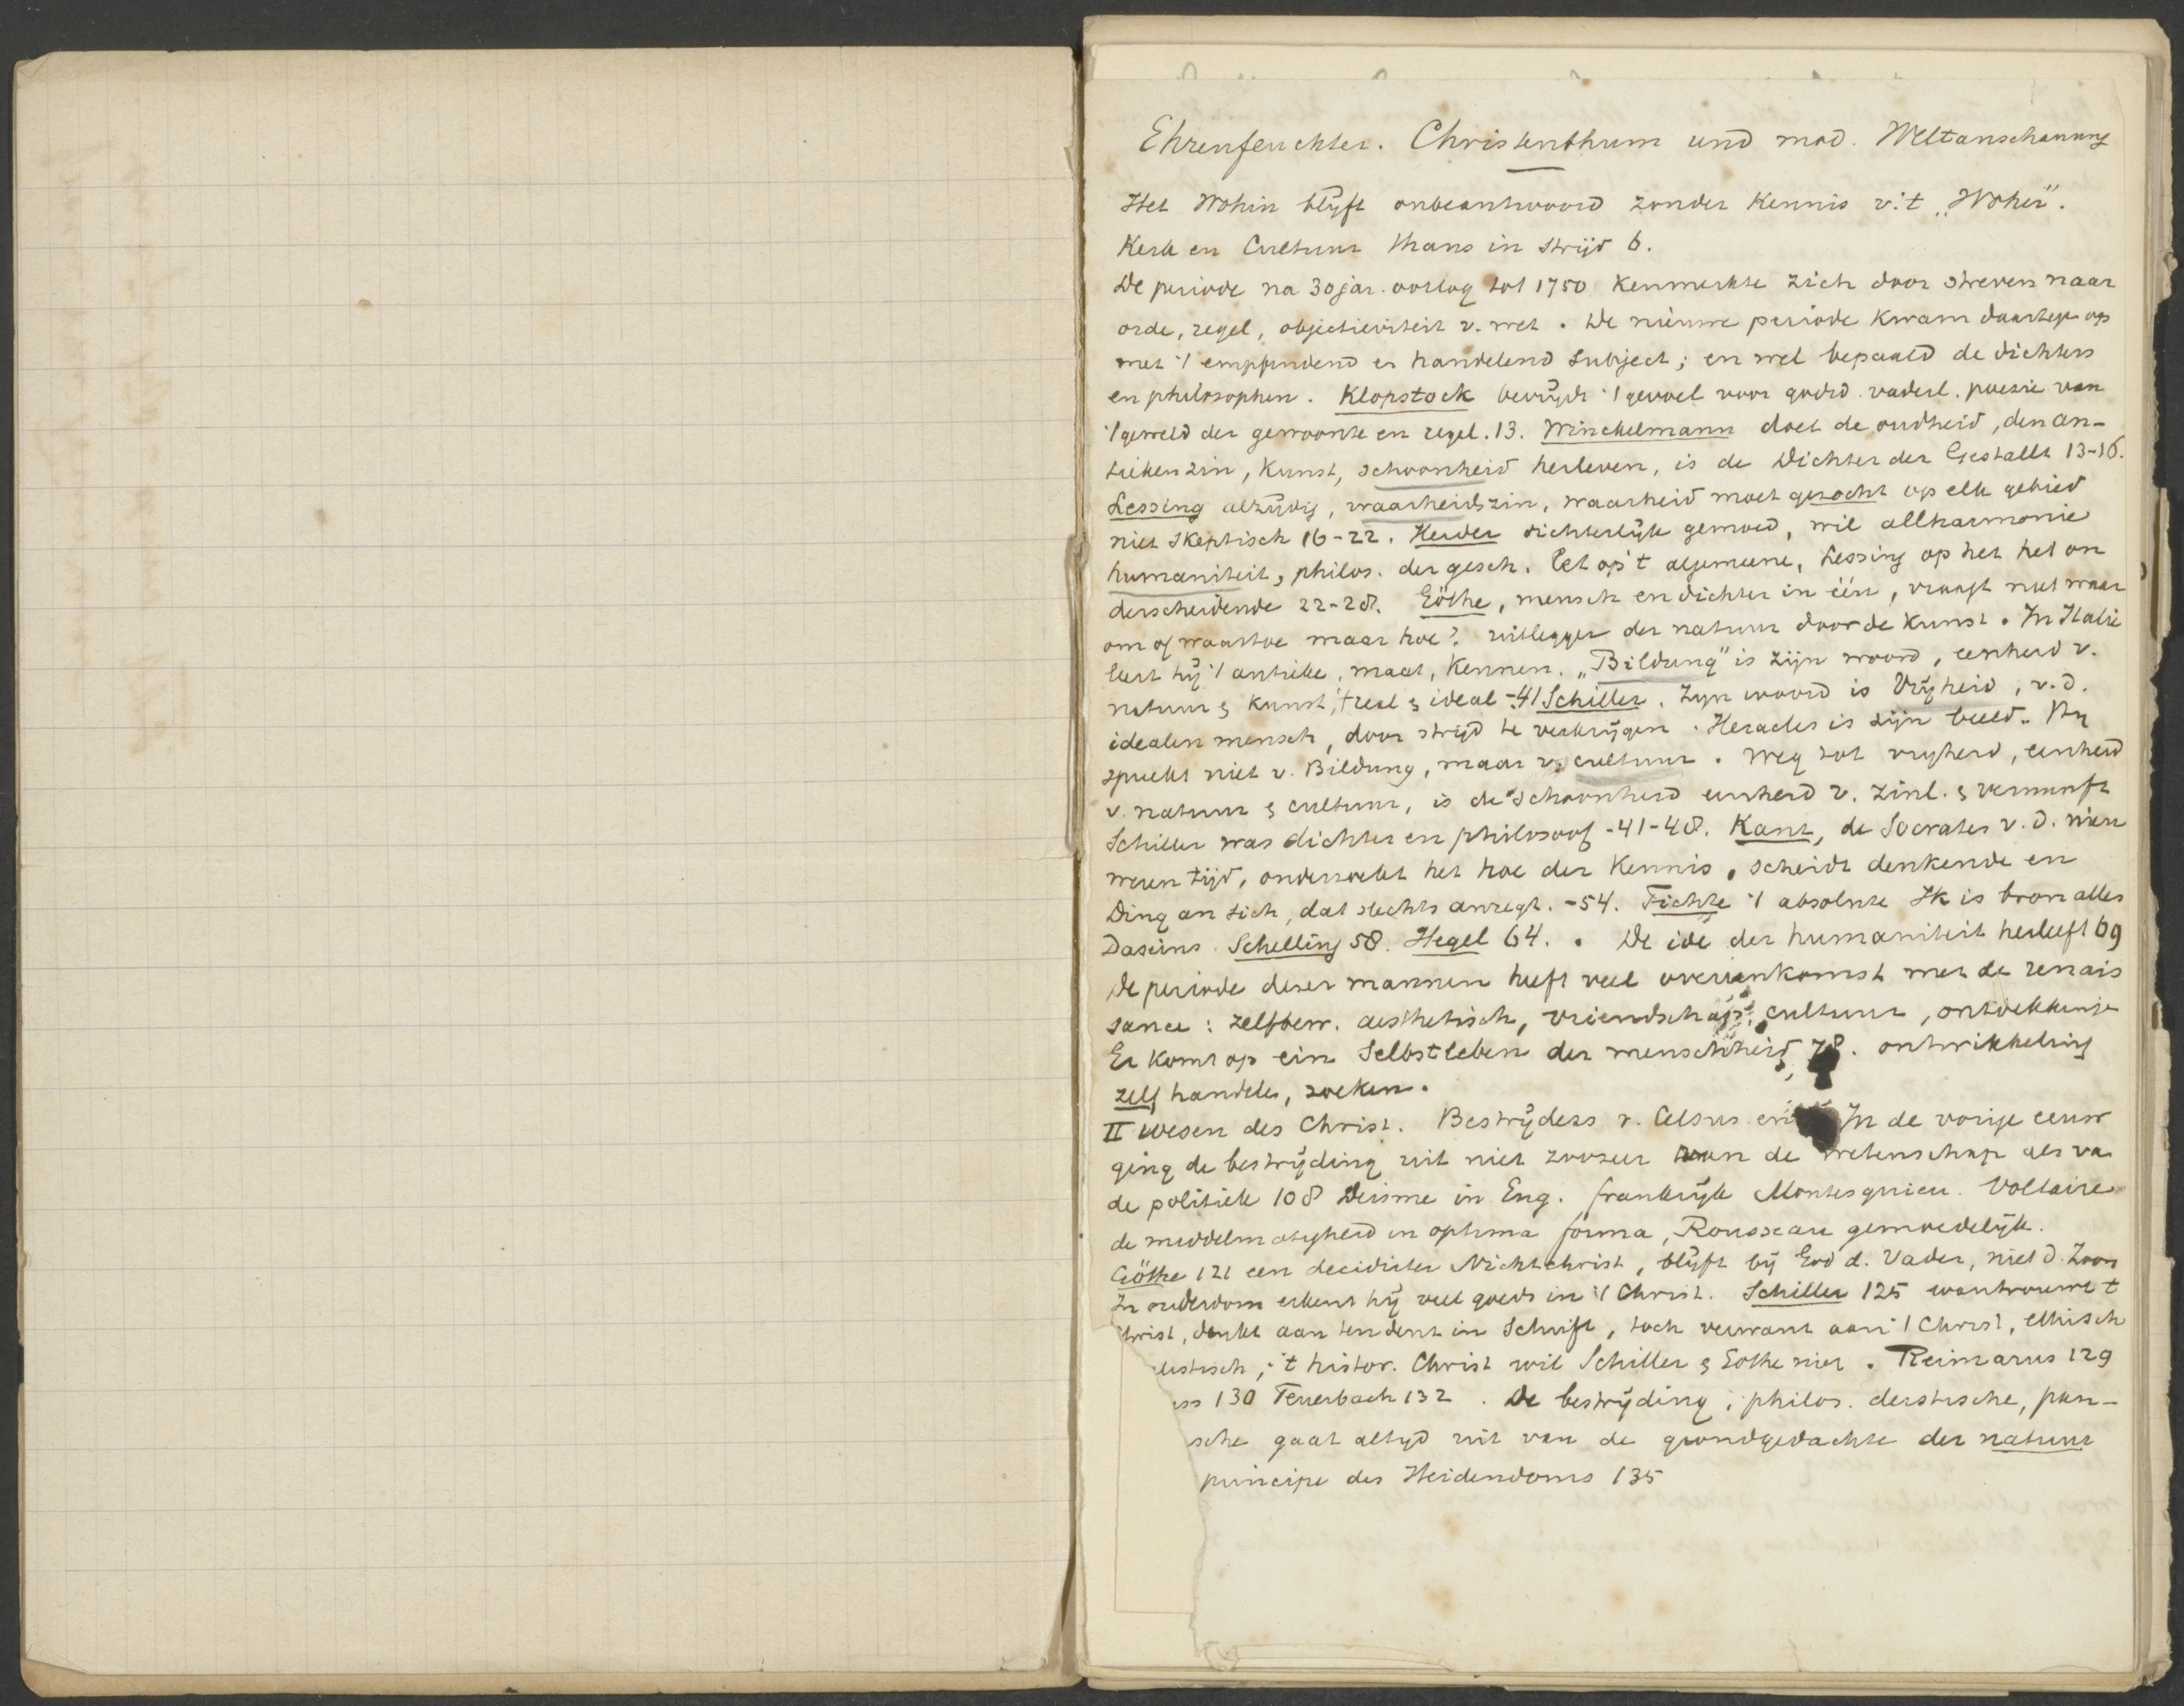 Ehrenfeuchter. Christenthum und mod. Weltanschauung
Het Wohin blijft onbeantwoord zonder kennis v. 't „Woher".
Kerk en Cultuur thans in strijd 6.
De periode na 30jar. oorlog tot 1750 kenmerkte zich door streven naar
orde, regel, objectieviteit v. wet. De nieuwe periode kwam daartege op
met 't empfindend en handelend subject; en wel bepaald de dichters
en philosophen. Klopstock bevrijdt 't gevoel voor godsd. vaderl. poezie van
't geweld der gewoonte en regel. 13. Winckelmann doet de oudheid, den an-
tieken zin, kunst, schoonheid herleven, is de Dichter der Gestallt 13-16.
Lessing alzijdig, waarheidszin, waarheid moet gezocht op elk gebied
niet skeptisch 16-22. Herder dichterlijk gemoed, wil allharmonie
humaniteit, philos. der gesch. let op 't algemeene, Lessing op het het on
derscheidende 22-28. Göthe, mensch en dichter in één, vraagt niet waar
om of waartoe maar hoe? uitlegger der natuur door de kunst. In Italie
leert hij 't antieke, maat, kennen. „Bildung" is zijn woord, eenheid v.
natuur & kunst, 't real & ideal -41 Schiller. Zijn woord is Vrijheid, v.d.
idealen mensch, door strijd te verkrijgen. Heracles is zijn beeld. Hij
spreekt niet v. Bildung, maar v. cultuur. Weg tot vrijheid, eenheid
v. natuur & cultuur, is de schoonheid eenheid v. zinl. & vernunft
Schiller was dichter en philosoof -41-48. Kant, de Socrates v.d. nieu
weren tijd, onderzoekt het hoe der kennis, scheidt denkende en
Ding an sich, dat slechts anregt. -54. Fichte 't absolute Ik is bron alles
Daseins. Schelling 58. Hegel 64. . De idé der humaniteit herleeft 69
De periode dezer mannen heeft veel overeenkomst met de renais
sance: zelfbew. aesthetisch, vriendschap, cultuur, ontdekkinge
Er komt op ein Selbstleben der menschheid, 78. ontwikkeling
zelf handele, zoeken.
II Wesen des Christ. Bestrijders v. Celsus In de vorige eeuw
ging de bestrijding uit niet zoozeer van de wetenschap als va
de politiek 108 Deisme in Eng. frankrijk Montesquieu. Voltaire
de middelmatigheid in optima forma, Rousseau gemoedelijk.
Göthe 121 een decidirter Nichtchrist, blijft bij God d. Vader, niet d. Zoon
In ouderdom erkent hij veel goeds in 't Christ. Schiller 125 wantrouwt 't
Christ, denkt aan tendent in Schrift, toch verwant aan 't Christ, ethisch
listisch, 't histor. Christ wil Schiller & Göthe niet. Reimarus 129
uss 130 Feuerbach 132. De bestrijding, philos. deistische, pan-
sche gaat altijd uit van de grondgedachte der natuur
principe des Heidendoms 135